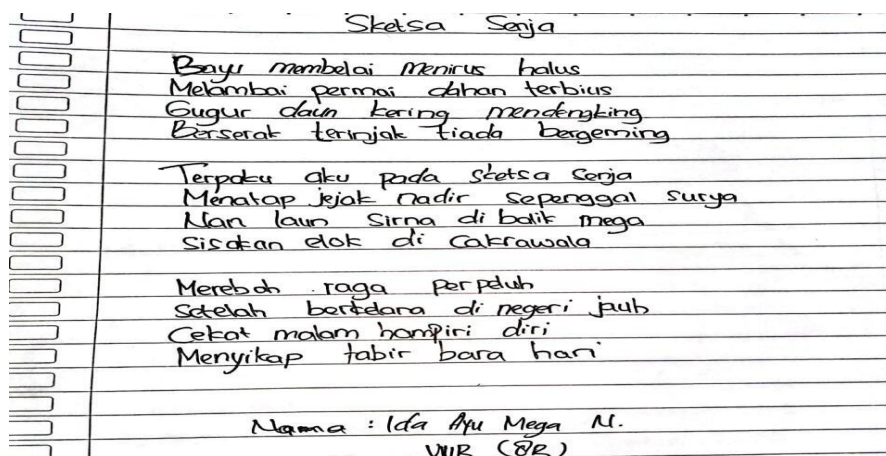 Sketsa Senja
Bayu membelai menirus halus
Melambai permai dahan terbius
Gugur daun kering mendengking
Berserak terinjak tiada bergeming
Terpaku aku pada sketsa senja
Menatap jejak nadir sepenggal surya
Nan laun sirna di balik mega
Sisakan elok di cakrawala
Merebah raga perpeluh
Setelah berkelana di negeri jauh
Cekat malam hampiri diri
Menyikap tabir bara hari
Nama : Ida Ayu Mega N.